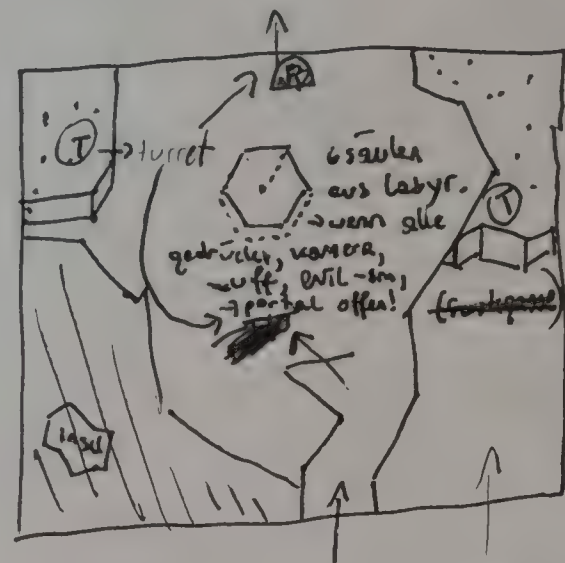 R
T → turret
6 säulen
aus Labyr.
→ wenn alle
gedrückt, kamera,
→ uff, evil-
→ portal offen!
T
Insel